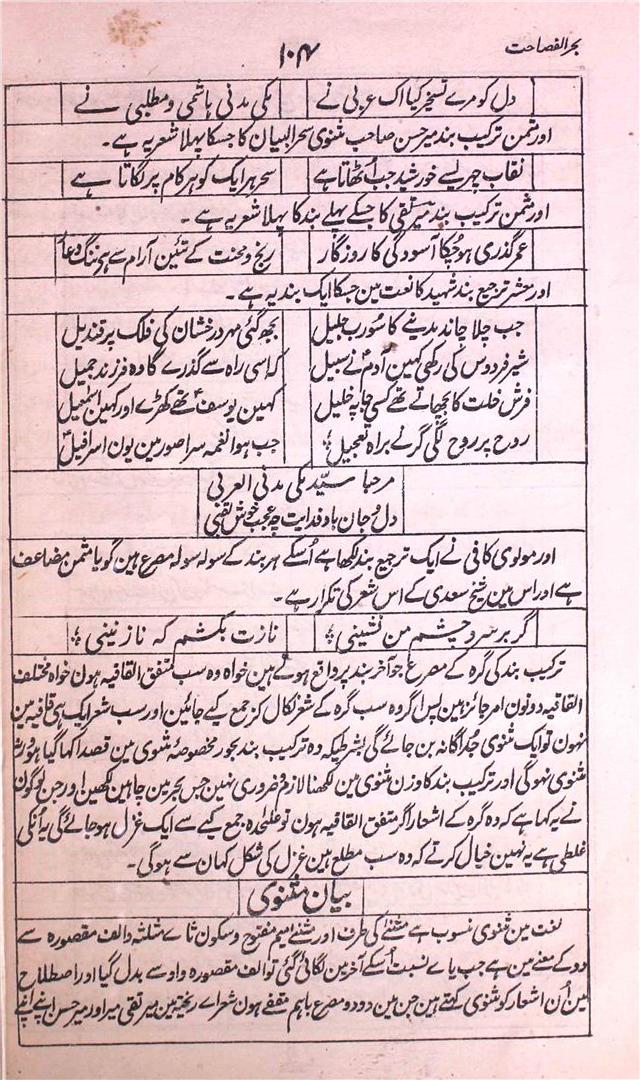 بحر الفصاحت
۱۰۴۷
دل کو مرے تسخیر کیا اک عربی نے مکی مدنی ہاشمی و مطلبی نے
اور مثمن ترکیب بند میر حسن صاحب مثنوی سحر البیان کا جسکا پہلا شعر یہ ہے۔
نقاب چہرے سے خورشید جب اُٹھاتا ہے سحر ہر ایک کو ہر کام پر لگاتا ہے
اور مثمن ترکیب بند میر تقی کا جسکے پہلے بند کا پہلا شعر یہ ہے۔
عمر گذری ہو چکا آسودگی کا روزگار رنج و محنت کے تئین آرام سے ہی ننگ و عار
اور معشر ترجیع بند شہید کا نعت مین جسکا ایک بند یہ ہے۔
جب چلا چاند مدینے کا سُورب جلیل بجھ گئی مہر درخشان کی فلک پر قندیل
شیر فردوس کی رکھی کہین آدم نے سبیل کہ اسی راہ سے گذرے گا وہ فرزند جمیل
فرش خلت کا بچھاتے تھے کسی جا پہ خلیل کہین یوسف تھے کھڑے اور کہین اسمٰعیل
روح پر روح لگی گرنے براہ تعجیل جب ہوا نغمہ سرا صور مین یون اسرافیل
مرحبا سیّد مکی مدنی العربی
دل و جان باد فدایت چہ عجب خوش لقبی
اور مولوی کافی نے ایک ترجیع بند لکھا ہے اُسکے ہر بند کے سولہ سولہ مصرع ہین گویا مثمن مضاعف
ہے اور اس مین شیخ سعدی کے اس شعر کی تکرار ہے۔
گر بر سر و چشم من نشینی نازت بکشم کہ نازنینی
ترکیب بند کی گرہ کے مصرع جو آخر بند پر واقع ہوتے ہین خواہ وہ سب متفق القافیہ ہون خواہ مختلف
القافیہ دونون امر جائز ہین پس اگر وہ سب گرہ کے شعر نکال کر جمع کیے جائین اور سب شعر ایک ہی قافیہ مین
نہون تو ایک مثنوی جداگانہ بن جائے گی بشرطیکہ وہ ترکیب بند بحور مخصوصۂ مثنوی مین قصداً کہا گیا ہو ورنہ
مثنوی نہوگی اور ترکیب بند کا وزن مثنوی مین لکھنا لازم و ضروری نہین جس بحر مین چاہین لکھین اور جن لوگون
نے یہ کہا ہے کہ وہ گرہ کے اشعار اگر متفق القافیہ ہون تو علٰحدہ جمع کیے سے ایک غزل ہو جائے گی یہ اُنکی
غلطی ہے یہ نہین خیال کرتے کہ وہ سب مطلع ہین غزل کی شکل کہان سے ہوگی۔
بیان مثنوی
لغت مین مثنوی منسوب ہے مثنےٰ کی طرف اور مثنےٰ میم مفتوح و سکون ثاے مثلثہ والف مقصورہ سے
دو کے معنے مین ہے جب یاے نسبت اُسکے آخر مین لگائی گئی تو الف مقصورہ واو سے بدل گیا اور اصطلاح
مین اُن اشعار کو مثنوی کہتے ہین جن مین دو دو مصرع باہم مقفےٰ ہون شعراے ریختہ مین میر تقی میر اور میر حسن اپنے اپنے